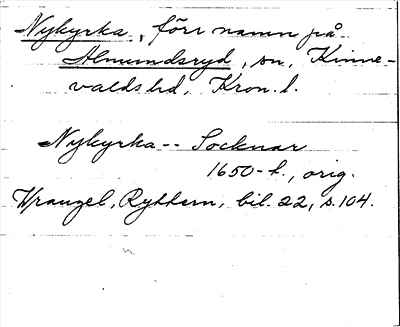 Nykyrka, förr namn på
Almundsryd, sn, Kinne-
valds hd, Kron. l.
Nykyrka -- Socknar
1650-t., orig.
Wrangel, Ryttern, bil. 22, s. 104.